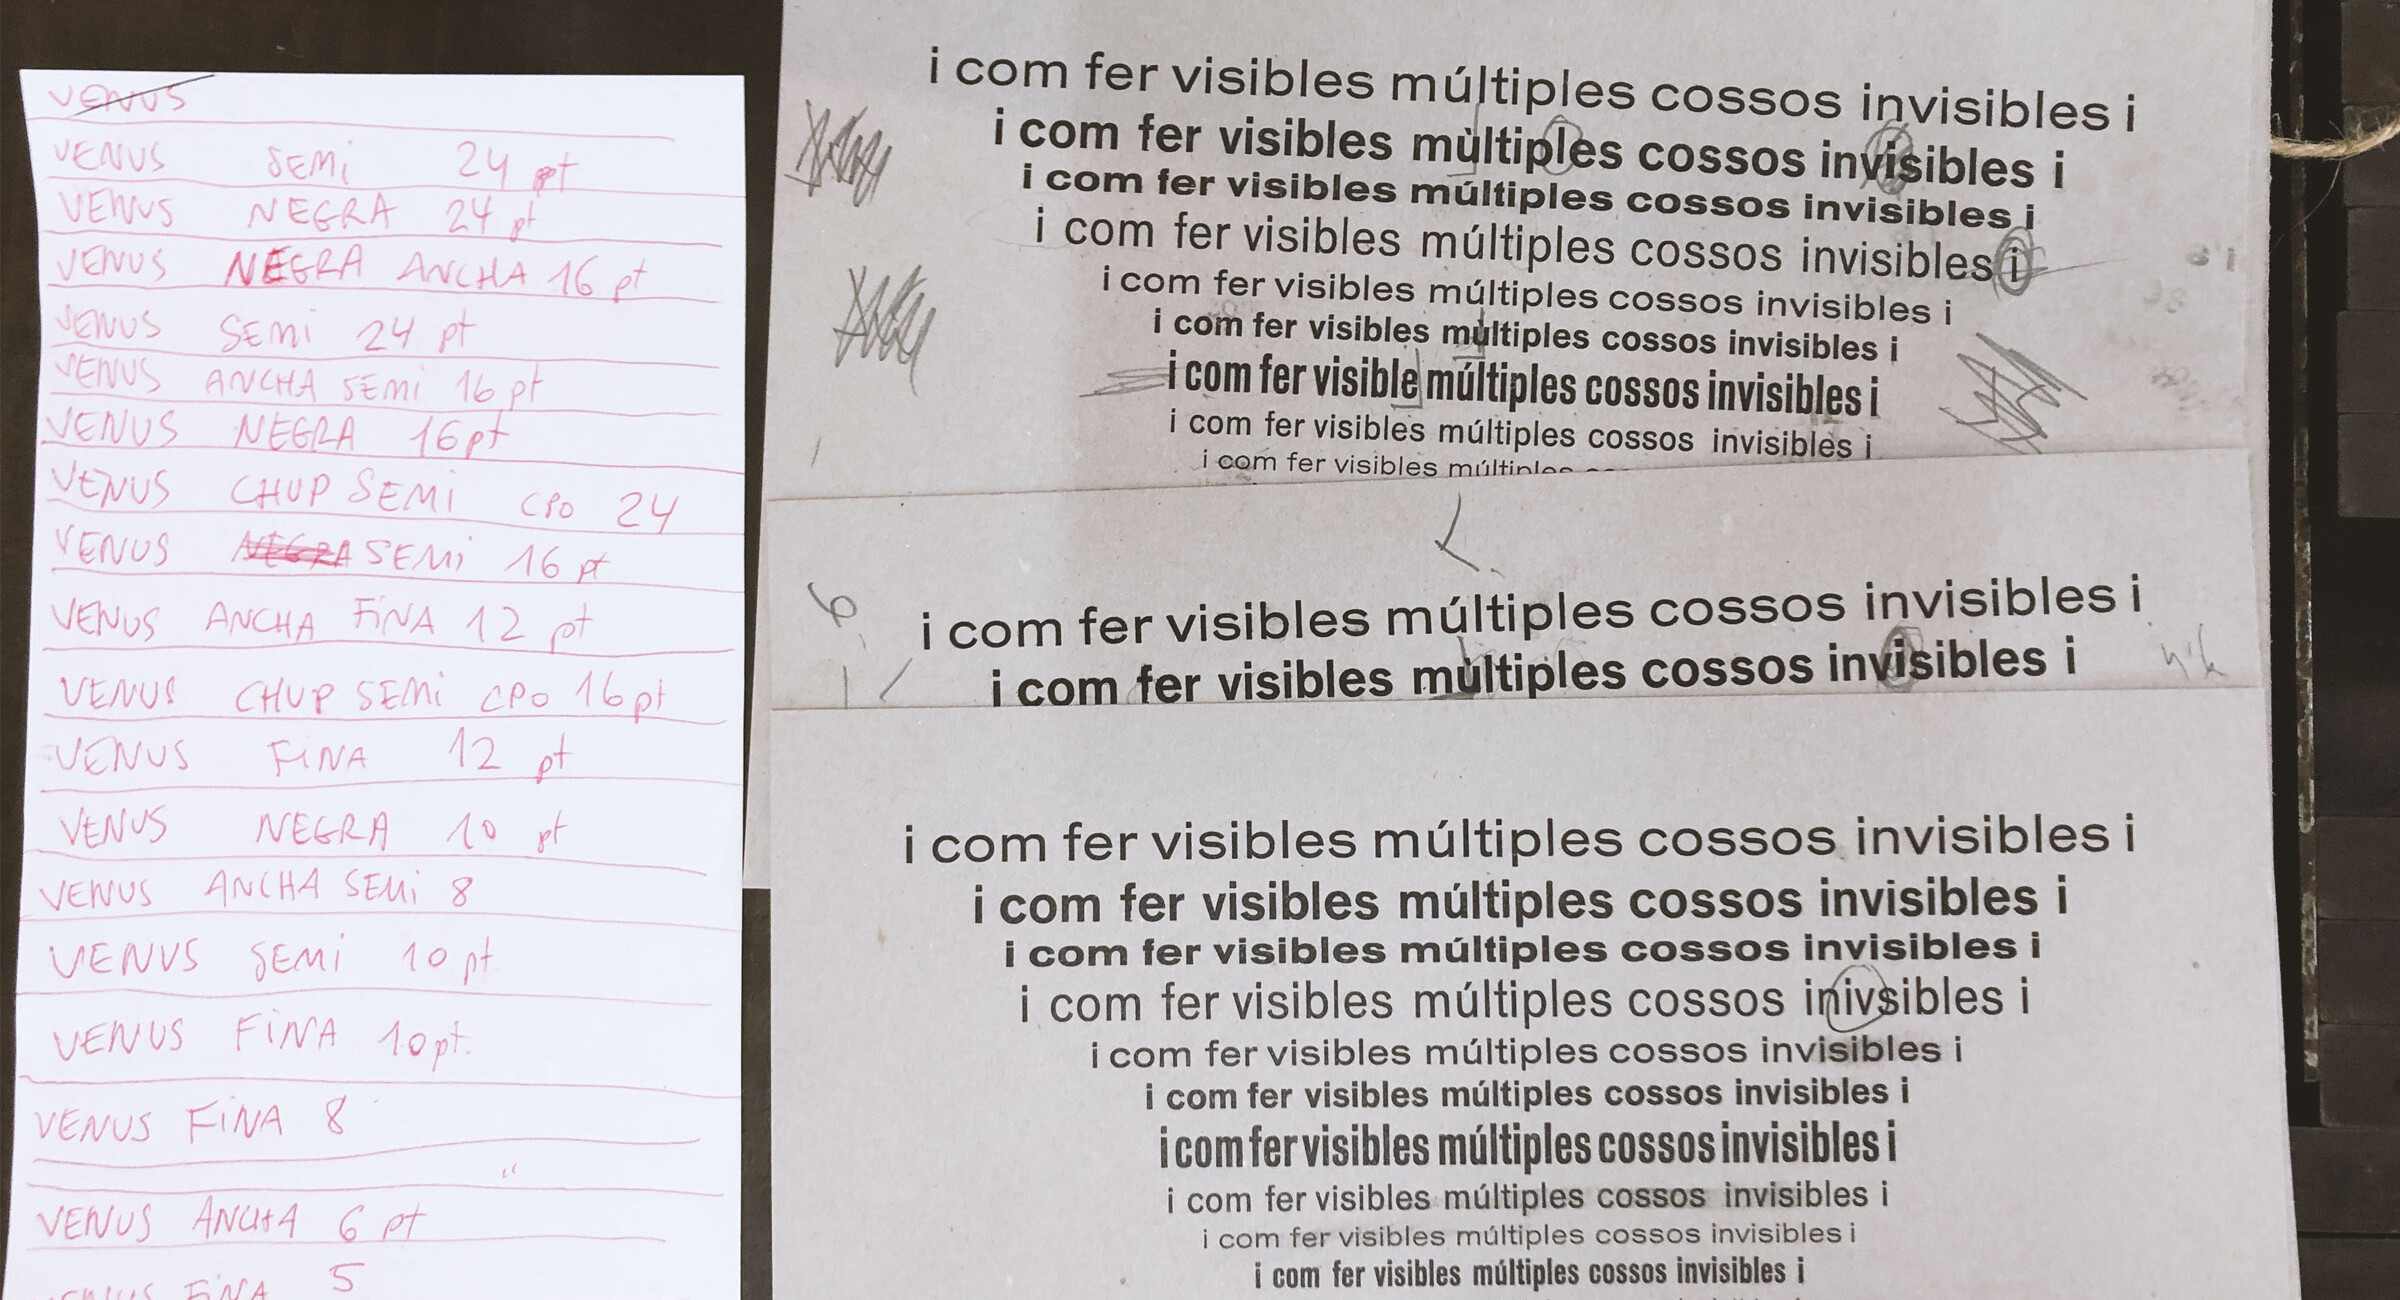 VENUS
VENUS SEMi 24 pt
VENUS NEGRA 24 pt
VENUS NEGRA ANCHA 16 pt
VENUS SEMi 24 pt
VENUS ANCHA SEMi 16 pt
VENUS NEGRA 16 pt
VENUS CHUP SEMi CPO 24
VENUS NEGRA SEMi 16 pt
VENUS ANCHA FiNA 12 pt
VENUS CHUP SEMi CPO 16 pt
VENUS FiNA 12 pt
VENUS NEGRA 10 pt
VENUS ANCHA SEMi 8
VENUS SEMi 10 pt
VENUS FiNA 10 pt.
VENUS FiNA 8
"
VENUS ANCHA 6 pt
VENUS FiNA 5
i com fer visibles múltiples cossos invisibles i
i com fer visibles mùltiples cossos invisibles i
i com fer visibles múltiples cossos invisibles i
i com fer visibles múltiples cossos invisibles i
i com fer visibles múltiples cossos invisibles i
i com fer visibles múltiples cossos invisibles i
i com fer visible múltiples cossos invisibles i
i com fer visibles múltiples cossos invisibles i
i com fer visibles múltiples
i com fer visibles múltiples cossos invisibles i
i com fer visibles mùltiples cossos invisibles i
i com fer visibles múltiples cossos invisibles i
i com fer visibles múltiples cossos invisibles i
i com fer visibles múltiples cossos invisibles i
i com fer visibles múltiples cossos inivsibles i
i com fer visibles múltiples cossos invisibles i
i com fer visibles múltiples cossos invisibles i
i com fer visibles múltiples cossos invisibles i
i com fer visibles múltiples cossos invisibles i
i com fer visibles múltiples cossos invisibles i
i com fer visibles múltiples cossos invisibles i